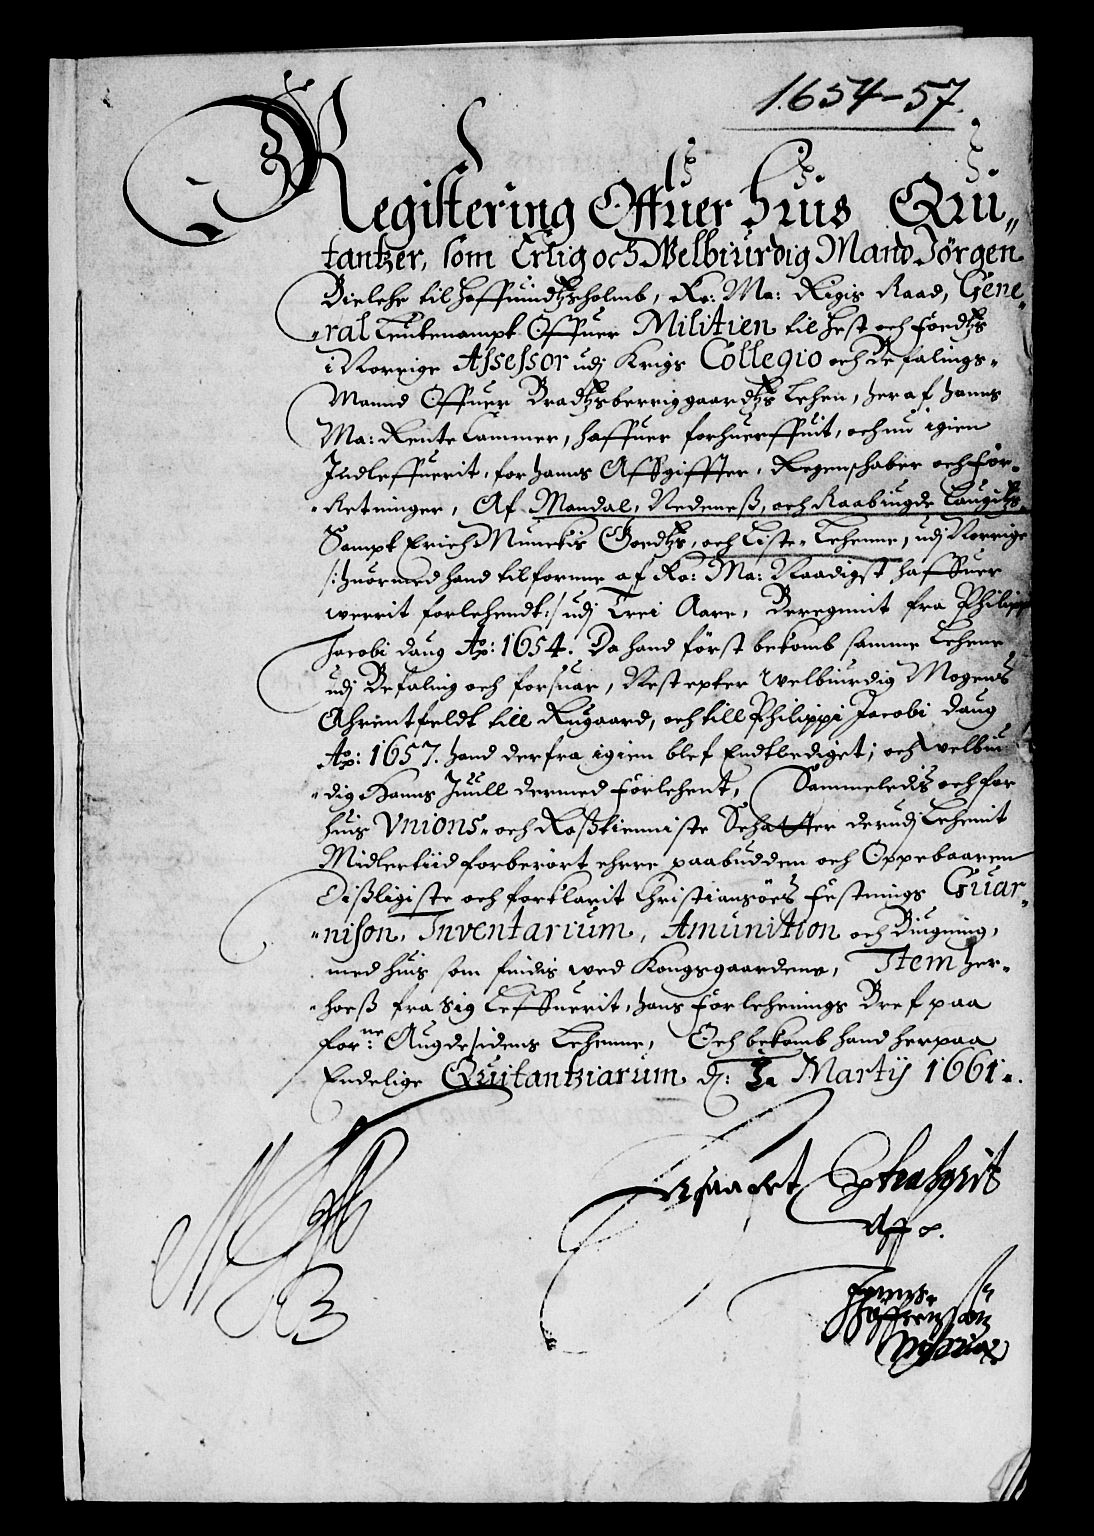 1654-57.
Registering Offuer huis Qui„
tantzer, som Erlig och Welbiurdig Mand Jörgen
Bielche til Haffuindtzholmb, Ko: Ma: Rigis Raad, Gene„
„ral Leutenampt Offuer Militien til Hest och Foedtz
i Norrige Assessor udj Krigs Collegio och Befalings„
Mannd Offuer Bradtzberriggaardtz Lehen, her af hanns
Ma: Rente Cammer, haffuer forhuerffuit, och nu igien
Indleffuerit, for hanns Affgiffter, Regenschaber och för„
„Retninger, Af Mandal, Nedeneß, och Raabiugde Laugitz,
Sampt Erich Munckis Goedtz, och Liste„ Lehenne, udj Norrige
/:huormed hand tilforne af Ko: Ma: Naadigst haffuer
werrit forlehendt:/ udj Trei Aare, Beregnnit fra Philippi
Jacobi daug Ao: 1654. Da hand först bekomb samme Lehene
udj Befaling och forsuar, Nest epter Welbiurdig Mogens
Ahrentfeldt till Rugaard, och till Philippi Jacobi daug
Ao: 1657. hand derfra igien blef Endtlediget; och Welbiur„
„dig Hanns Juull dermed forlehent, Sammeledis och for
huis Unions„ och Roßtienniste Schatter derudj Lehenit
Midlertiid forberört ehrre paabudden och Oppebaaren
Dißligiste och forklarit Christiansöes Festnings Guar„
„nison, Inventarium, Amunition och Biugning,
med huis som findis wed Kongsgaardene, Item her„
„hoeß fra sig Leffuerit, hans forlehenings Bref paa
forne: Augdesidens Lehenne, Och bekomb hand herpaa
Endelige Quitantziarum d: 3. Martij 1661.